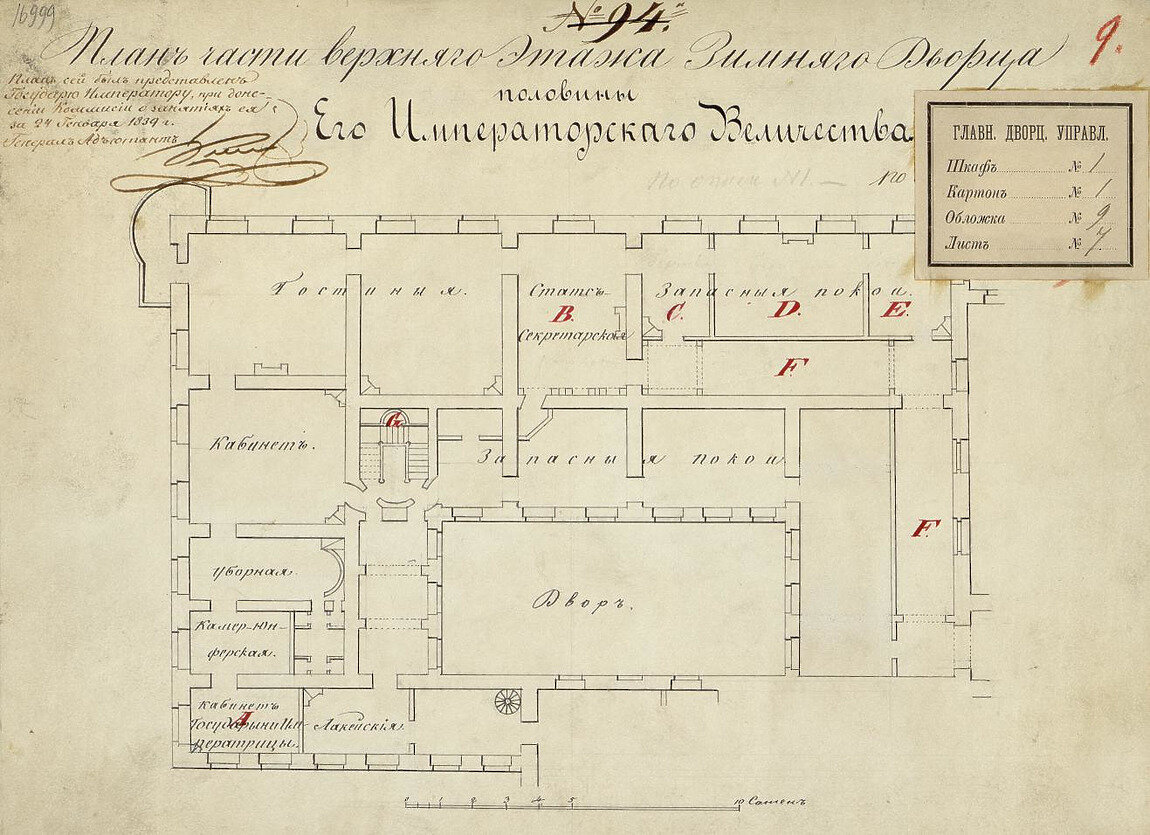 16999
№ 94.
Планъ части верхняго Этажа Зимняго Дворца
9.
половины
Его Императорскаго Величества
Планъ сей былъ представленъ
Государю Императору, при доне-
сеніи Коммисіи о занятіяхъ ея
за 24 Генваря 1839 г.
Генералъ Адъютантъ
По описи №1. —
ГЛАВН. ДВОРЦ. УПРАВЛ.
Шкафъ № 1
Картонъ № 1
Обложка № 9
Листъ № 7
Гостиныя.
Статсъ-
B.
Секретарская
Запасныя покои.
C.
D.
E.
F.
G.
Кабинетъ.
Запасныя покои.
F.
Уборная.
Дворъ.
Камер-юн-
ферская.
Кабинетъ
A
Государыни Им-
ператрицы.
Лакейскія.
0 1 2 3 4 5 10 Саженъ